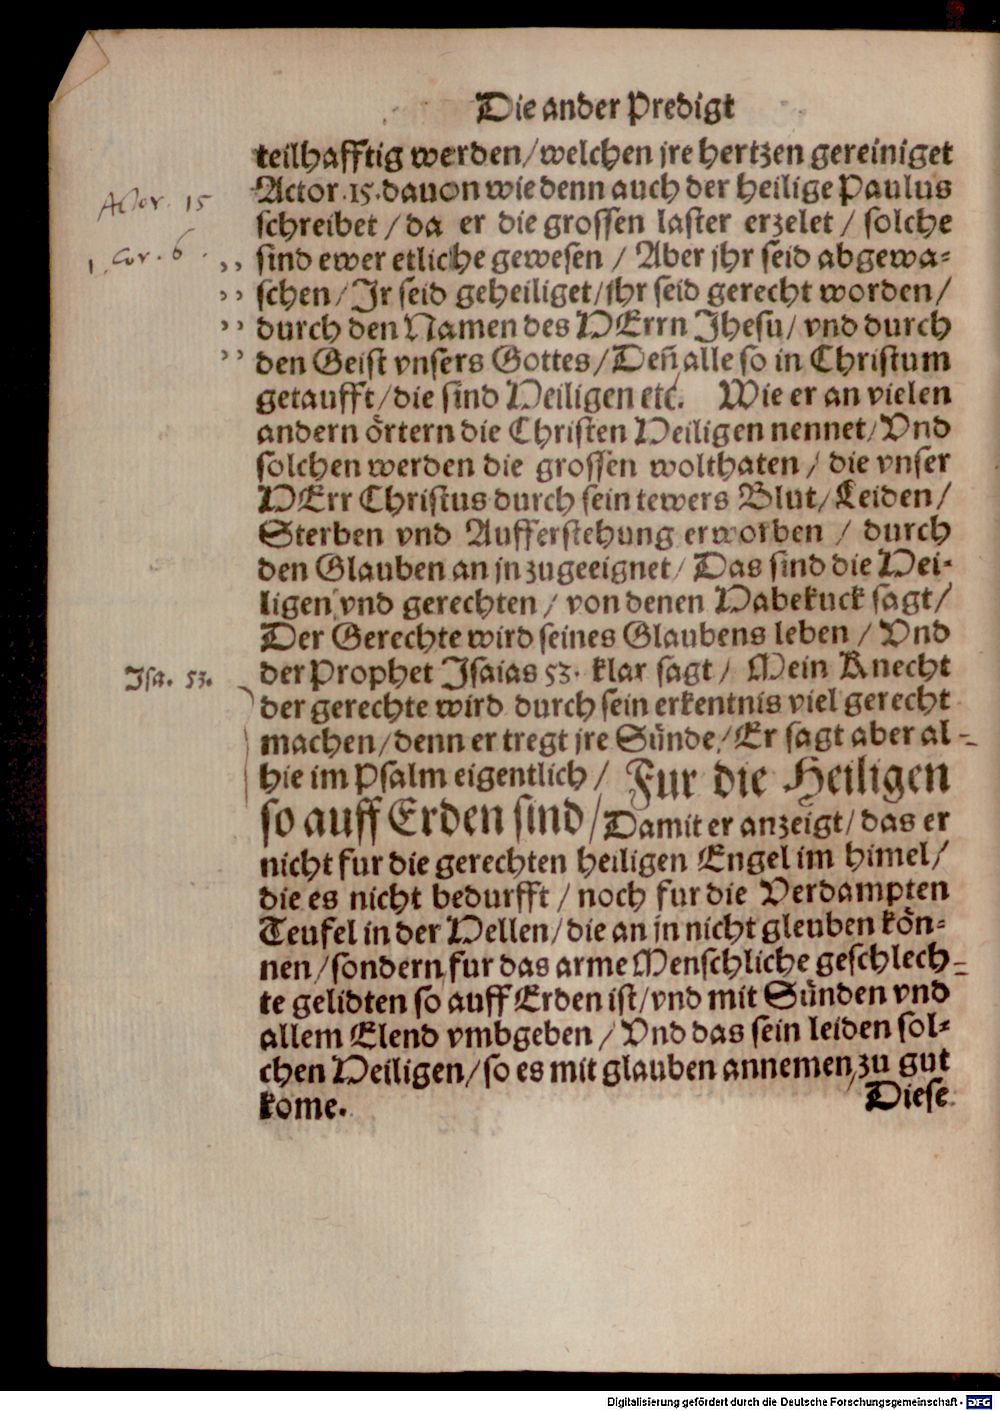 Die ander Predigt
teilhafftig werden/welchen jre hertzen gereiniget
Actor. 15
Actor. 15. dauon wie denn auch der heilige Paulus
schreibet / da er die grossen laster erzelet / solche
1. Cor. 6.
,, sind ewer etliche gewesen / Aber jhr seid abgewa-
,, schen/ Jr seid geheiliget/jhr seid gerecht worden/
,, durch den Namen des HErrn Jhesu/ vnd durch
,, den Geist vnsers Gottes/ Deñ alle so in Christum
getaufft/die sind Heiligen etc. Wie er an vielen
andern örtern die Christen Heiligen nennet/ Vnd
solchen werden die grossen wolthaten / die vnser
HErr Christus durch sein tewers Blut/ Leiden/
Sterben vnd Aufferstehung erworben / durch
den Glauben an jn zugeeignet/ Das sind die Hei-
ligen vnd gerechten / von denen Habekuck sagt/
Der Gerechte wird seines Glaubens leben / Vnd
Isa. 53.
der Prophet Isaias 53. klar sagt / Mein Knecht
der gerechte wird durch sein erkentnis viel gerecht
machen/denn er tregt jre Sünde/ Er sagt aber al-
hie im Psalm eigentlich / Fur die Heiligen
so auff Erden sind/ Damit er anzeigt/ das er
nicht fur die gerechten heiligen Engel im himel/
die es nicht bedurfft / noch fur die Verdampten
Teufel in der Hellen/die an jn nicht gleuben kön-
nen/sondern fur das arme Menschliche geschlech-
te gelidten so auff Erden ist/vnd mit Sünden vnd
allem Elend vmbgeben / Vnd das sein leiden sol-
chen Heiligen/so es mit glauben annemen,zu gut
kome.
Diese
Digitalisierung gefördert durch die Deutsche Forschungsgemeinschaft - DFG